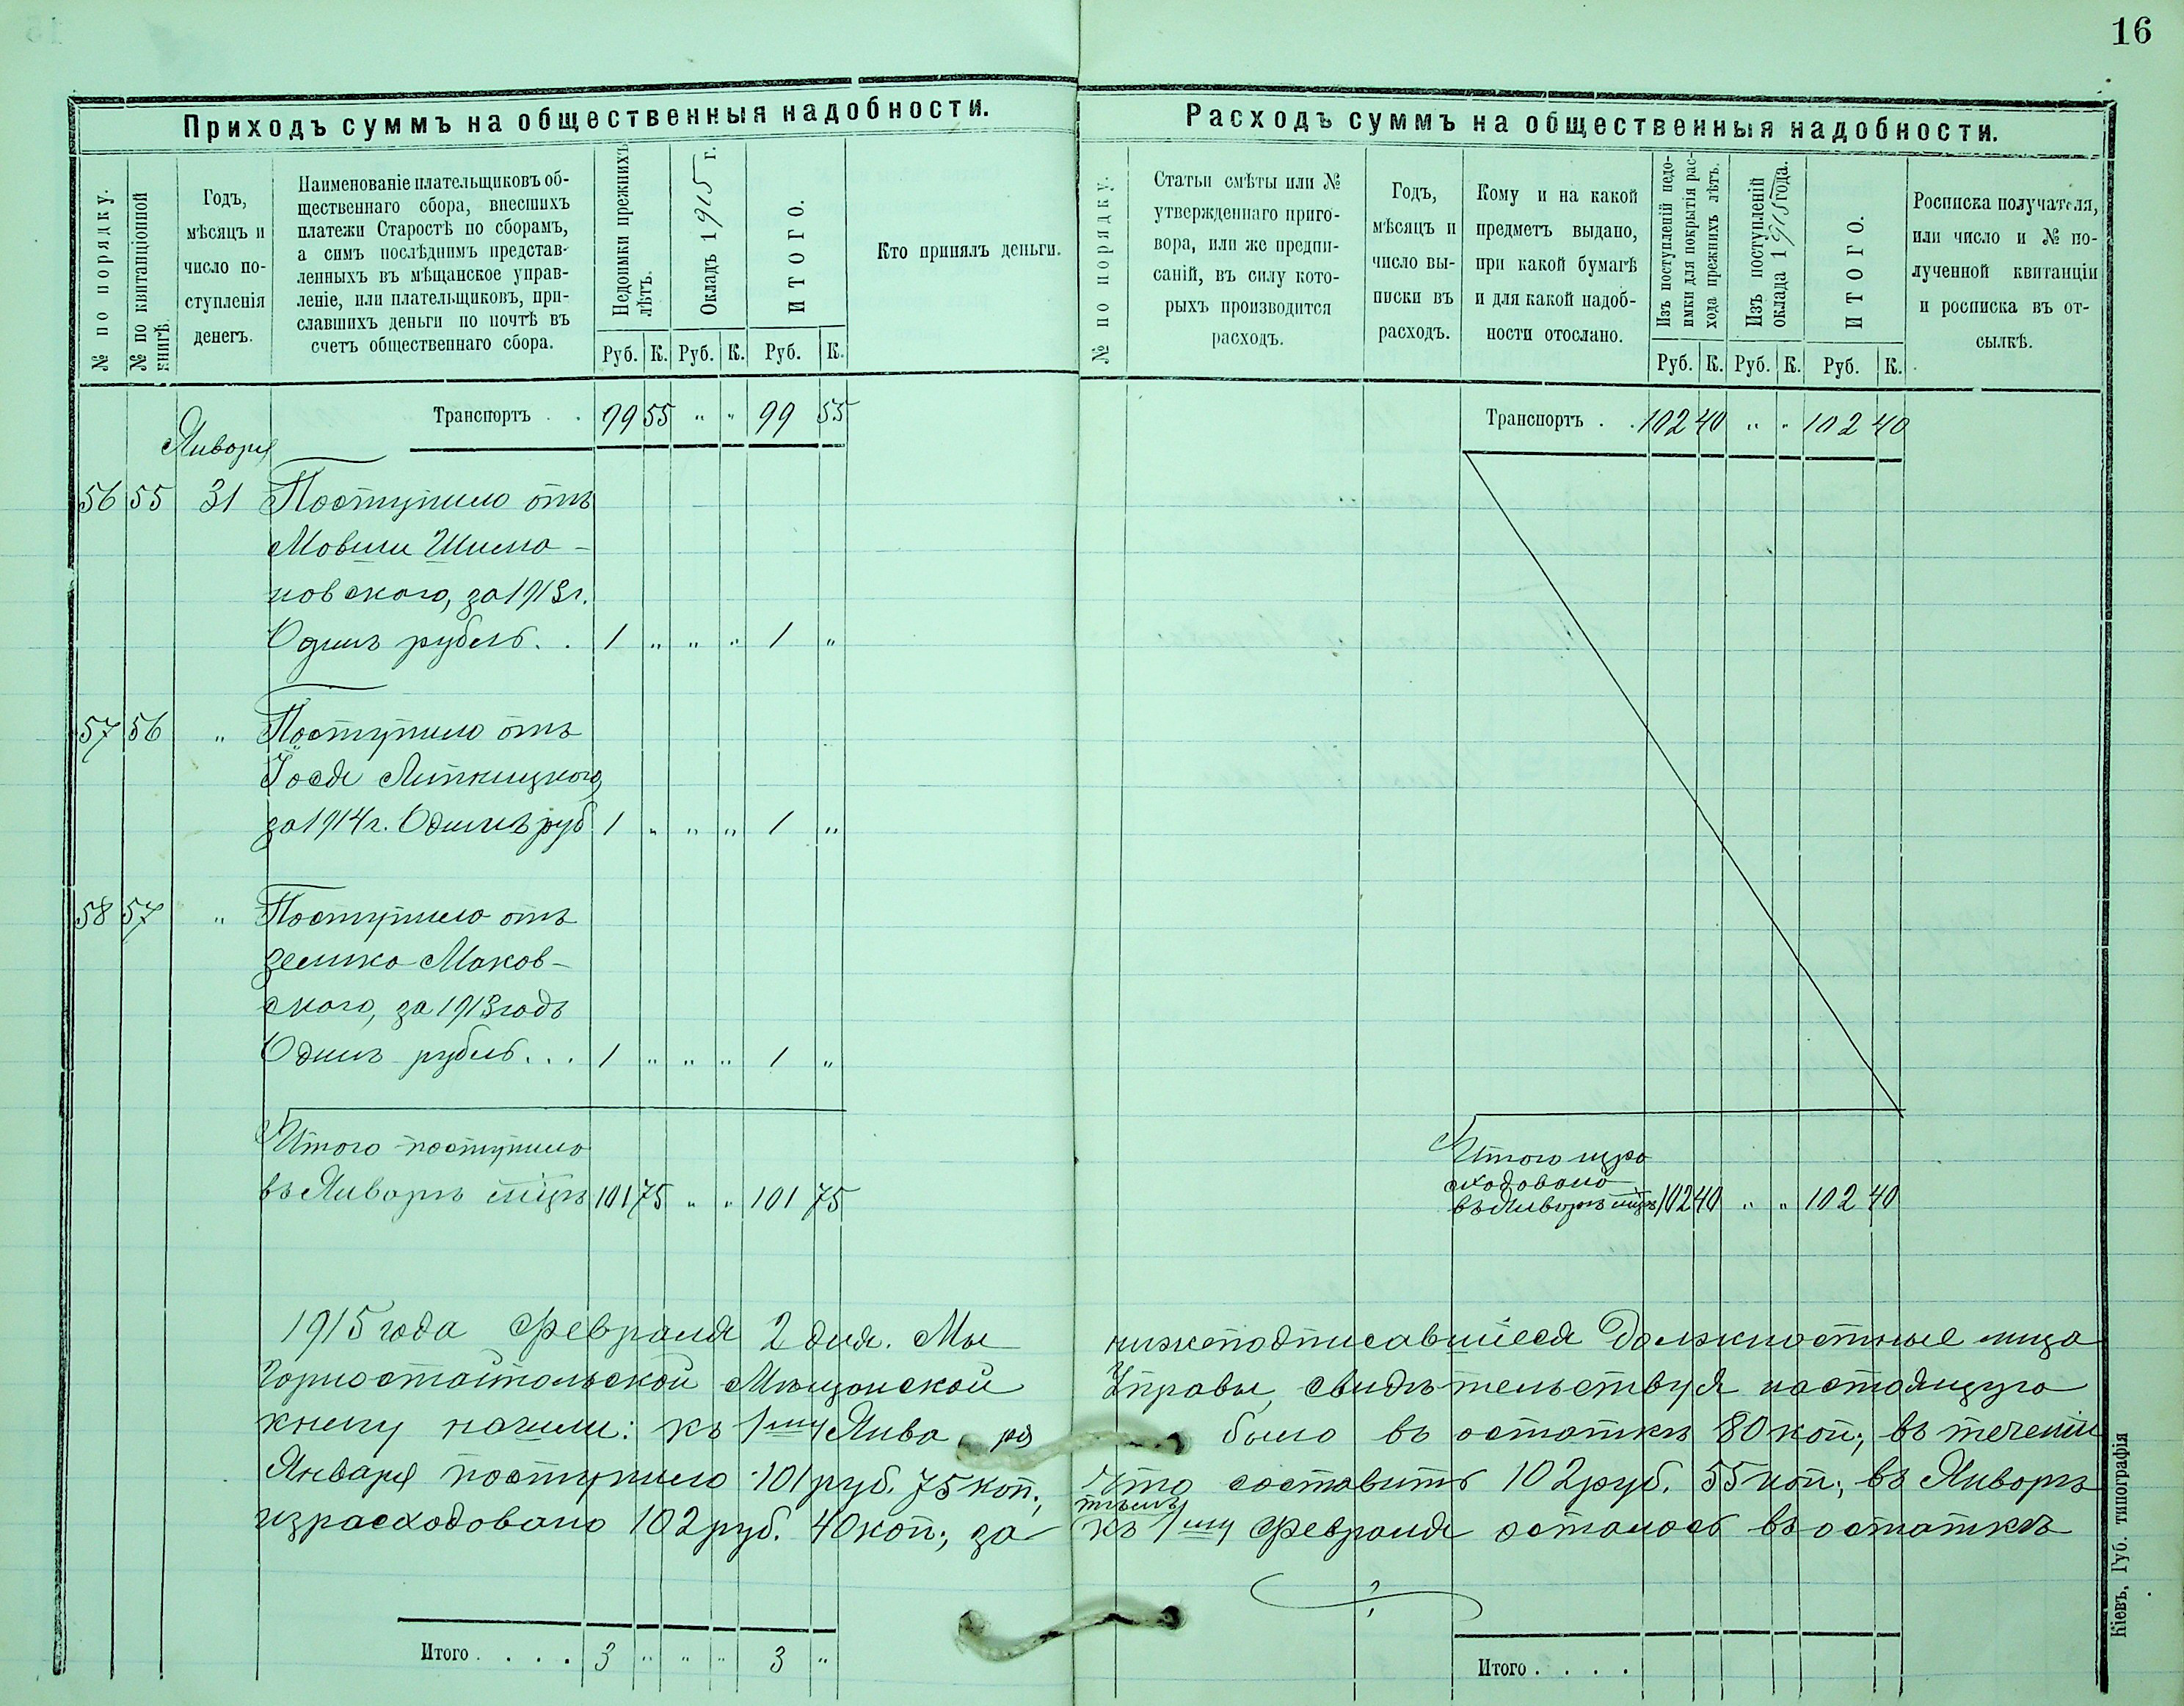 16
Приходъ суммъ на общественныя надобности.
№ по порядку.
№ по квитанціонной книгѣ.
Годъ,
мѣсяцъ и
число по-
ступленія
денегъ.
Наименованіе плательщиковъ об-
щественнаго сбора, внесшихъ
платежи Старостѣ по сборамъ,
а симъ послѣднимъ представ-
ленныхъ въ мѣщанское управ-
леніе, или плательщиковъ, при-
славшихъ деньги по почтѣ въ
счетъ общественнаго сбора.
Недоимки прежнихъ
лѣтъ.
Окладъ 1915 г.
ИТОГО.
Кто принялъ деньги.
Руб. К. Руб. К. Руб. К.
Транспортъ . . 99 55 " " 99 55
Января
56 55 31 Поступило отъ
Мовши Шима-
новского, за 1913 г.
Одинъ рубель . . 1 " " " 1 "
57 56 " Поступило отъ
Іося Литницкого,
за 1914 г. Одинъ руб 1 " " " 1 "
58 57 " Поступило отъ
Зелика Маков-
ского, за 1913 годъ
Одинъ рубль . . . 1 " " " 1 "
Итого поступило
въ Январѣ м-цѣ 101 75 " " 101 75
Расходъ суммъ на общественныя надобности.
№ по порядку.
Статьи смѣты или №
утвержденнаго приго-
вора, или же предпи-
саній, въ силу кото-
рыхъ производится
расходъ.
Годъ,
мѣсяцъ и
число вы-
писки въ
расходъ.
Кому и на какой
предметъ выдано,
при какой бумагѣ
и для какой надоб-
ности отослано.
Изъ поступленій недо-
имки для покрытія рас-
хода прежнихъ лѣтъ.
Изъ поступленій
оклада 1915 года.
ИТОГО.
Росписка получателя,
или число и № по-
лученной квитанціи
и росписка въ от-
сылкѣ.
Руб. К. Руб. К. Руб. К.
Транспортъ . . 102 40 " " 102 40
Итого изра
сходовано
въ Январѣ м-цѣ 102 40 " " 102 40
1915 года Февраля 2 дня. Мы нижеподписавшіеся Должностные лица
Горностайпольской Мѣщанской Управы, свидѣтельствуя настоящую
книгу нашли: къ 1му Января было въ остаткѣ 80 коп; въ теченіи
Января поступило 101 руб. 75 коп., что составитъ 102 руб. 55 коп; въ Январѣ
израсходовано 102 руб. 40 коп; за тѣмъ къ 1му Февраля осталось въ остаткѣ
Итого . . . . 3 " " " 3 "
Итого . . . .
Кіевъ, Губ. типографія